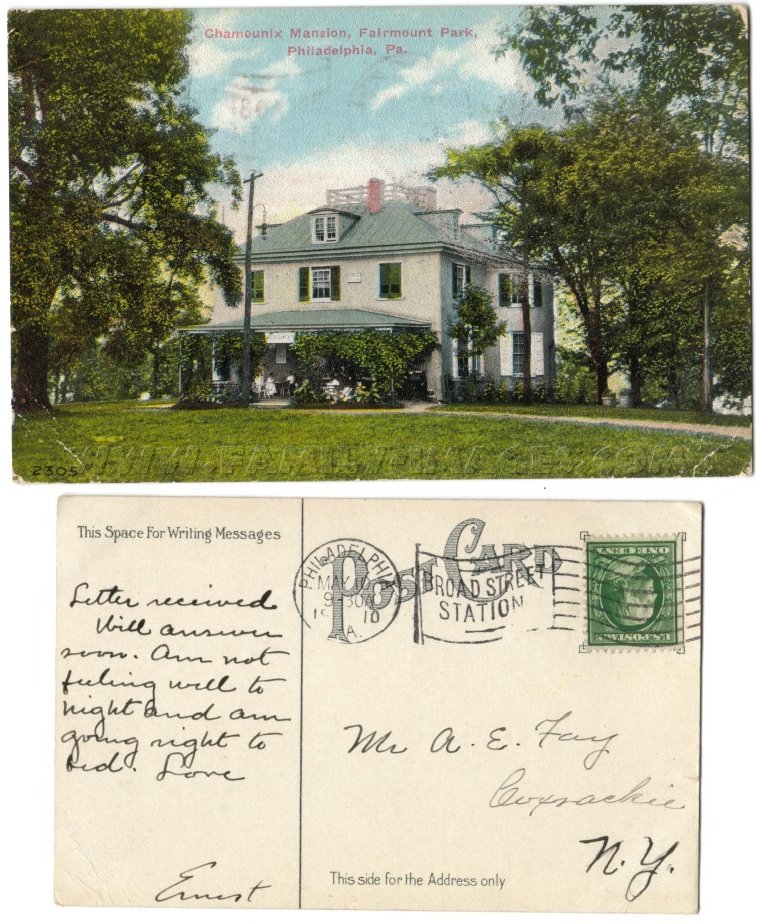 Chamounix Mansion, Fairmount Park,
Philadelphia, Pa.
2305
WWW.FAMILY-IMAGES.COM
This Space For Writing Messages
POST CARD
PHILADELPHIA
MAY 10
9-30A
1910
PA.
BROAD STREET
STATION
U.S. POSTAGE
ONE CENT
Letter received
Will answer
soon. Am not
feeling well to
night and am
going right to
bed. Love
Ernest
Mr A. E. Fay
Coxsackie
N.Y.
This side for the Address only